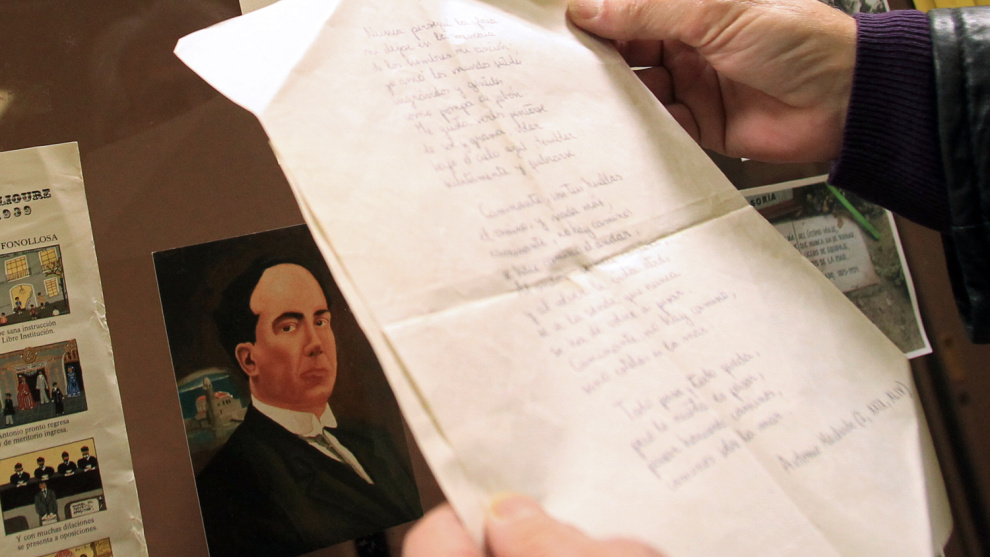 LIOURE
1939
FONOLLOSA
sana instrucción
Libre Institución.
Antonio pronto regresa
de meritorio ingresa.
Y con muchas dilaciones
se presenta a oposiciones.
Nunca perseguí la gloria
ni dejar en la memoria
de los hombres mi canción;
yo amo los mundos
y gentiles
como pompas de jabón
Me gusta verlos pintarse
de sol y grana, volar
bajo el cielo azul, temblar
súbitamente y quebrarse
Caminante, son tus huellas
el camino, y nada más;
caminante, no hay camino
se hace al andar.
y al volver la vista atrás
se ve la senda que nunca
se ha de volver a pisar
Caminante, no hay camino,
sino estelas en la mar.
Todo pasa y todo queda,
pero lo nuestro es pasar,
pasar haciendo caminos,
caminos sobre la mar
Antonio Machado
ÚLTIMO VIAJE,
DE EQUIPAJE,
DE LA MAR.